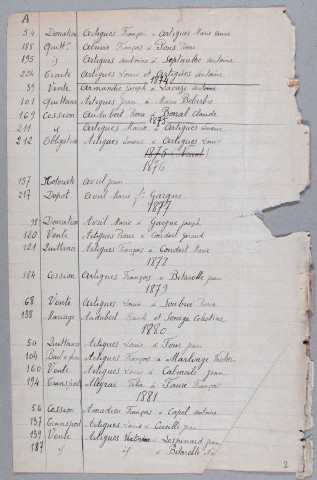 A
54 Donation Artigues François à Artigues Marie Anne
188 Quittce François à Pons
195 id Artigues Antoine à Septaubre Antoine
224 Traité Artigues Louis et Artigues Antoine
1874
39 Vente Armandie Joseph à Lacaze Antoine
101 Quittance Artigues Jean à Marie
169 Cession Audubert Rose à Bonal Claude
1875
211 id Artigues Marie à Artigues
212 Obligation Artigues à Artigues Louis
1875
1876
157 Notoriété Avril Jean
217 Dépot Avril Marie fe Gargne
1877
98 Donation Avril Marie à Gargne Joseph
120 Vente Artigues Pierre à Condort Girard
121 Quittance Artigues François à Condort Marie
1878
184 Cession Artigues François à Betaelle Jean
1879
68 Vente Artigues Louis à Soubrié Pierre
188 Mariage Audubert Basile et Célestine
1880
50 Quittance Artigues Louis à Four Jean
104 Bail à Artigues François à Martinge Victor
160 Vente Artigues Louis à Calmeals Jean
194 Transport Félix à Faure François
1881
56 Cession Amadieu François à Capel Antoine
137 Transport Artigues Louis à Jean
139 Vente Artigues à Lespinard Jean
187 id id à Betaelle
2